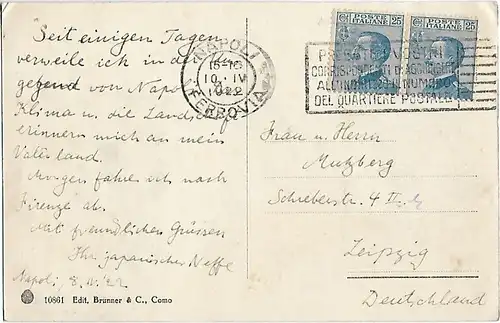 Seit einigen Tagen
verweile ich in der
Gegend von Napoli
Klima u. die Landschaft
erinnern mich an mein
Vaterland.
Morgen fahre ich nach
Firenze ab.
Mit freundlichen Grüssen
Ihr japanischer Neffe
Napoli, 8. IV. 22
10861 Edit. Brunner & C., Como
NAPOLI
10. IV
1922
FERROVIA
POSTE
ITALIANE
CENT 25
POSTE
ITALIANE
CENT 25
DEL QUARTIERE POSTALE
Frau u. Herrn
Mutzberg
Schreberstr. 4 II
Leipzig
Deutschland